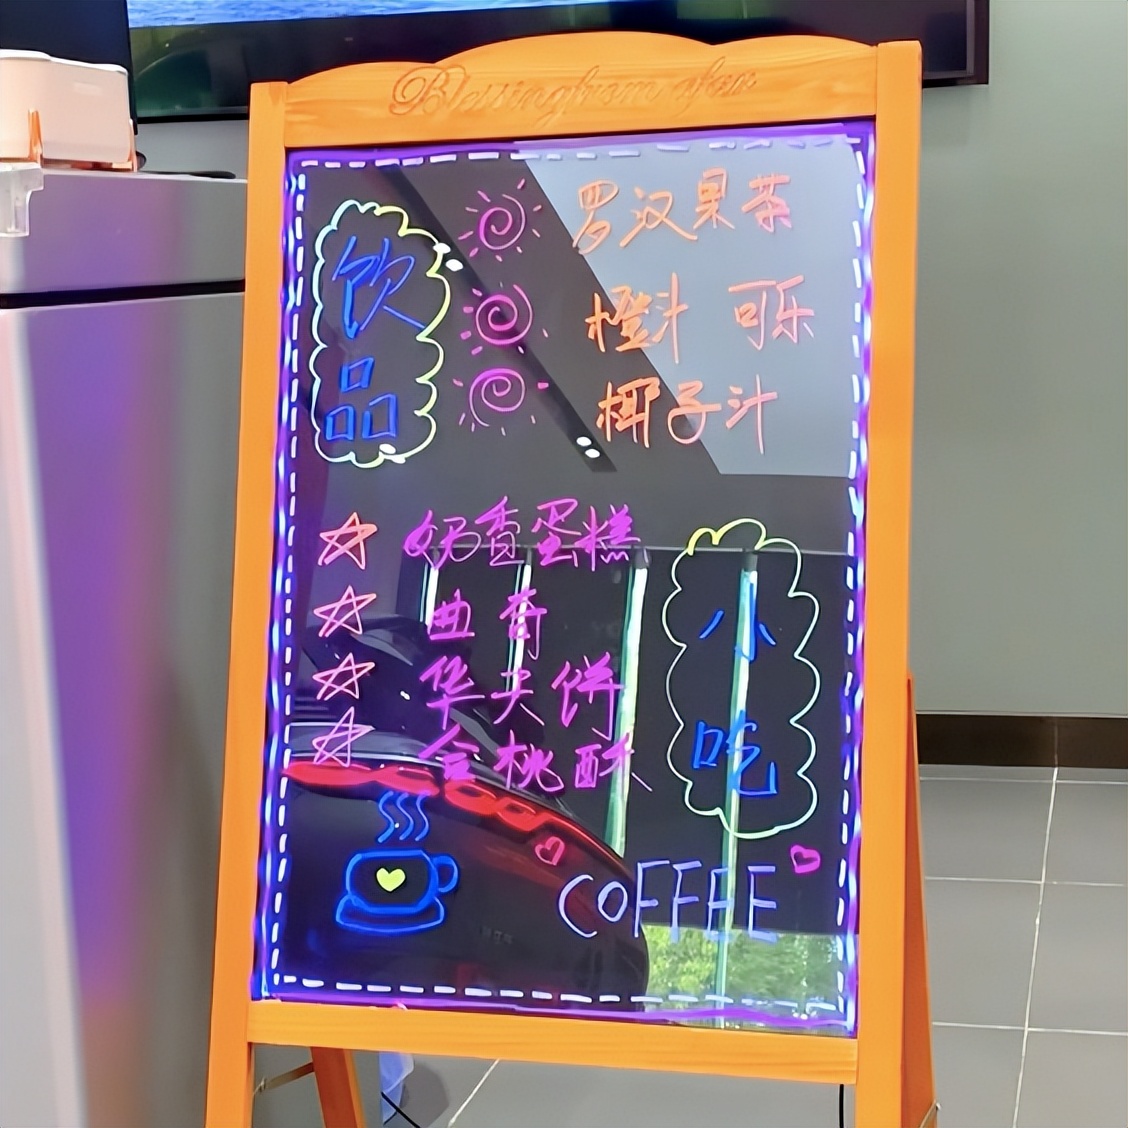 Blessing from afar
饮品
罗汉果茶
橙汁 可乐
椰子汁
奶香蛋糕
曲奇
华夫饼
合桃酥
小吃
COFFEE